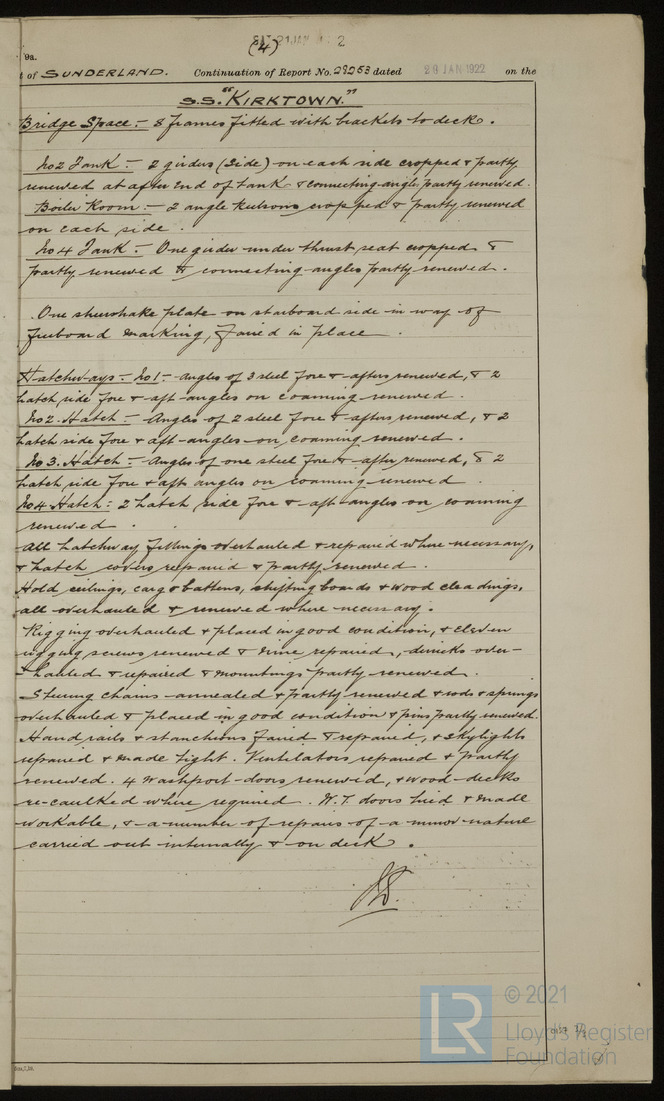 (4)
9a.
of SUNDERLAND. Continuation of Report No. 29253 dated 20 JAN 1922 on the
S.S. "KIRKTOWN."
Bridge Space:- 8 frames fitted with brackets to deck.
No2 Tank:- 2 girders (side) on each side cropped & partly
renewed at after end of tank & connecting angles partly renewed.
Boiler Room:- 2 angle keelsons cropped & partly renewed
on each side.
No4 Tank:- One girder under thrust seat cropped &
partly renewed & connecting angles partly renewed.
One sheerstrake plate on starboard side in way of
freeboard marking, faired in place.
Hatchways:- No1:- angles of 3 steel fore & afters renewed, & 2
hatch side fore & aft angles on coaming renewed.
No2. Hatch:- Angles of 2 steel fore & afters renewed, & 2
hatch side fore & aft-angles on coaming renewed.
No3. Hatch:- Angles of one steel fore & after renewed, & 2
hatch side fore & aft angles on coaming renewed.
No4 Hatch:- 2 hatch side fore & aft angles on coaming
renewed.
All hatchway fittings overhauled & repaired where necessary,
& hatch covers repaired & partly renewed.
Hold ceilings, cargo battens, shifting boards & wood cleadings,
all overhauled & renewed where necessary.
Rigging overhauled & placed in good condition, & eleven
rigging screws renewed & nine repaired, derricks over-
hauled & repaired & mountings partly renewed.
Steering chains annealed & partly renewed & rods & springs
overhauled & placed in good condition & pins partly renewed.
Hand rails & stanchions faired & repaired, & skylights
repaired & made tight. Ventilators repaired & partly
renewed. 4 washport-doors renewed, & wood-decks
re-caulked where required. W.T. doors tried & made
workable, & a number of repairs of a minor nature
carried out internally & on deck.
LR
© 2021
Lloyd's Register
Foundation